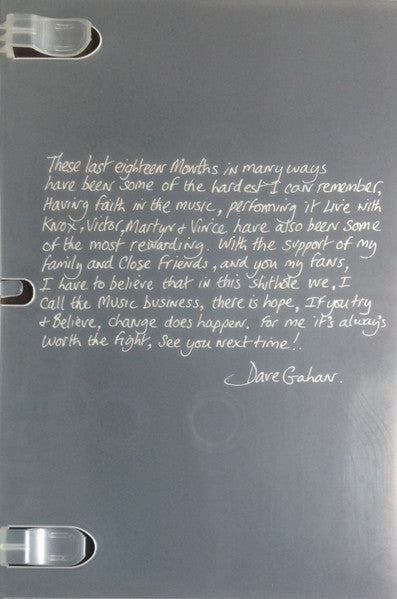 These last eighteen Months in many ways
have been some of the hardest I can remember,
Having faith in the music, performing it Live with
Knox, Victor, Martyn & Vince have also been some
of the most rewarding. With the support of my
family and Close Friends, and you my fans,
I have to believe that in this shithole we, I
Call the Music business, there is hope, If you try
& Believe, change does happen. For me it's always
worth the fight, See you next time!
Dave Gahan.